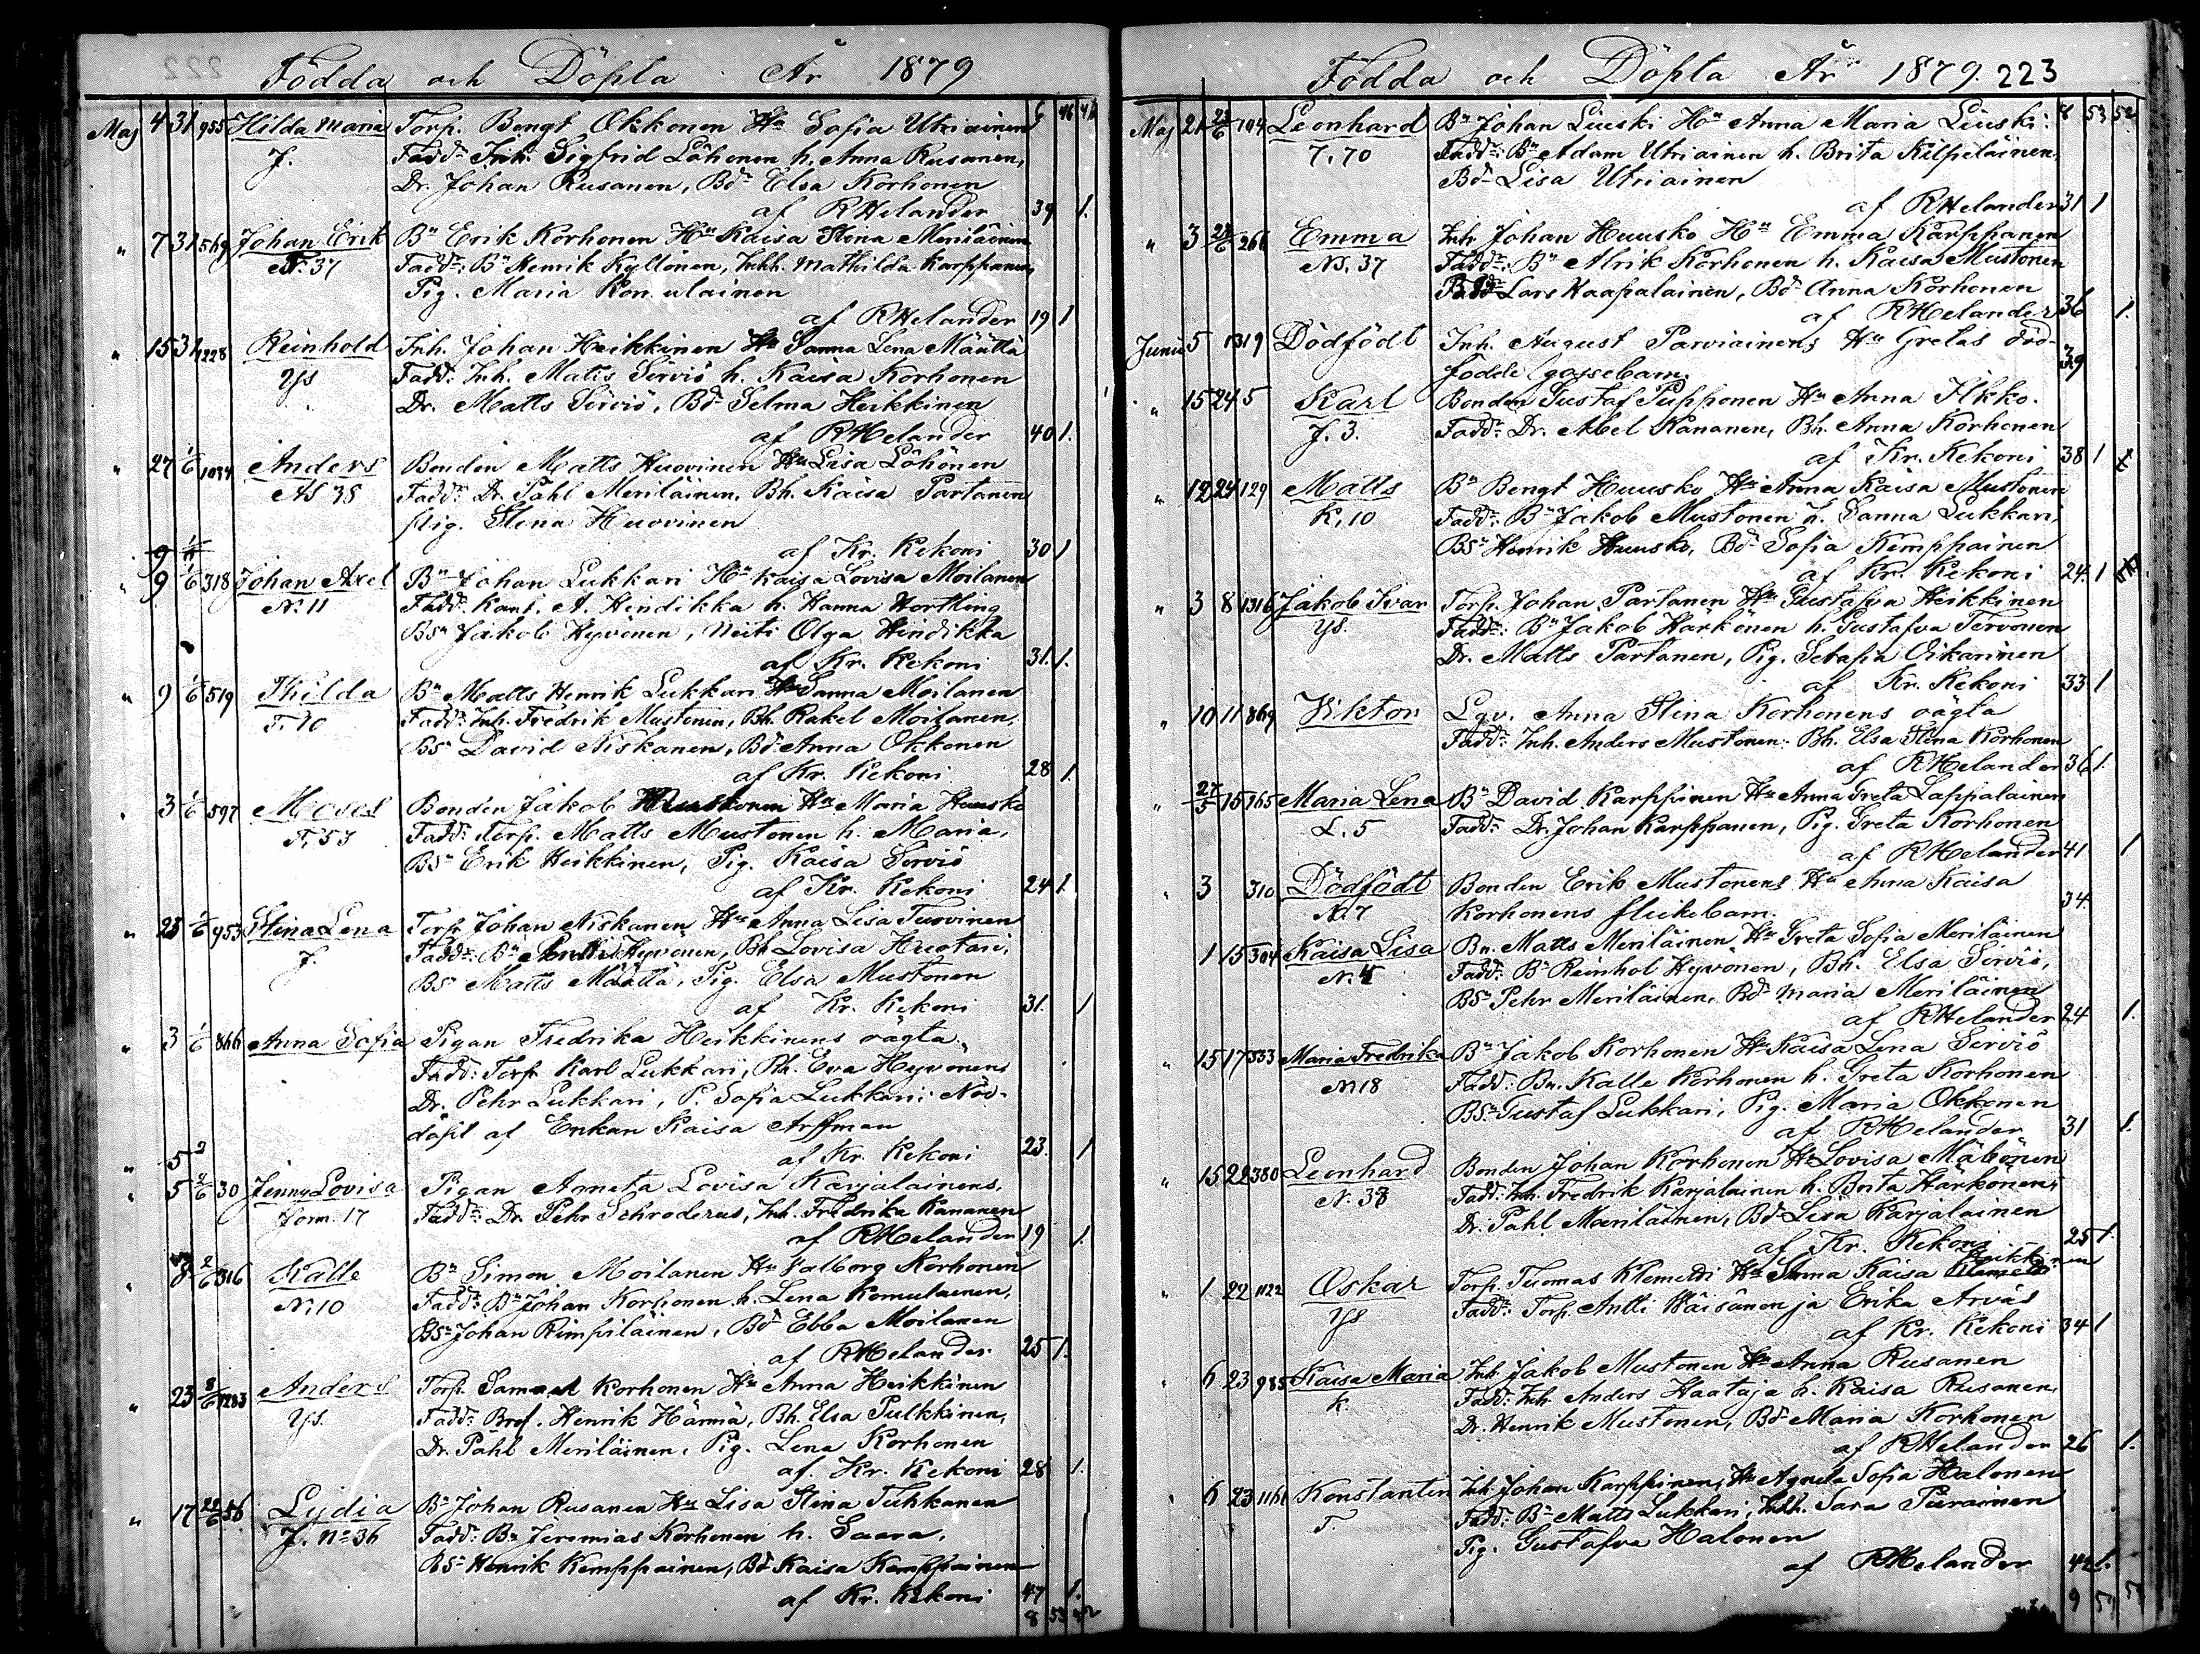 Födda och Döpta År 1879
Maj 4 31 955 Hilda Maria Torp. Bengt Okkonen Hu Sofia Utriainen
J. Fadd: Inh. Sigfrid Löhönen h. Anna Rusanen,
Dr. Johan Rusanen, Bd. Elsa Korhonen
af RHelander 39 1.
" 7 31 569 Johan Erik Bn Erik Korhonen Hu Kaisa Stina Meriläinen
N. 37 Fadd: Bn Henrik Kyllönen, Inhh. Mathilda Karppanen,
Pig. Maria Komulainen
af RHelander 19 1
" 15 31 228 Reinhold Inh. Johan Heikkinen Hu Sanna Lena Määttä
Ys Fadd: Inh. Matts Serviö h. Kaisa Korhonen
Dr. Matts Serviö, Bd. Selma Heikkinen
af RHelander 40 1.
" 27 1/6 1034 Anders Bonden Matts Huovinen Hu Lisa Löhönen
Fadd: Dr. Påhl Meriläinen, Bh. Kaisa Partanen
Pig. Stina Huovinen
af Kr. Kekoni 30 1
" 9 1/6 318 Johan Axel Bn Johan Lukkari Hu Kaisa Lovisa Moilanen
N. 11 Fadd. Kant. A. Hindikka h. Hanna Hortling
Bsn Jakob Hyvönen, Neiti Olga Hindikka
af Kr. Kekoni 31. 1.
" 9 1/6 519 Thilda Bn Matts Henrik Lukkari Hu Sanna Moilanen
T. 10 Fadd: Inh. Fredrik Mustonen, Bh. Rakel Moilanen,
Bsn David Niskanen, Bd. Anna Okkonen
af Kr. Kekoni 28 1.
3 1/6 597 Moses Bonden Jakob Mustonen Hu Maria Huusko
T. 53 Fadd: Torp. Matts Mustonen h. Maria,
Bsn Erik Heikkinen, Pig. Kaisa Serviö
af Kr. Kekoni 24 1.
" 23 1/6 953 Stina Lena Torp. Johan Niskanen Hu Anna Lisa Tuovinen
J. Fadd: Bn Hyvönen, Bh Lovisa Huotari,
Bsn Matts Määttä, Pig. Elsa Mustonen
af Kr. Kekoni 31. 1
" 3 1/6 866 Anna Sofia Pigan Fredrika Heikkinens oägta.
Fadd: Torp. Karl Lukkari, Bh. Eva Hyvönen,
Dr. Pehr Lukkari, P. Sofia Lukkari; Nöd-
döpt af Enkan Kaisa Arffman
af Kr. Kekoni 23. 1
" 5 2/6 30 Jenny Lovisa Pigan Agneta Lovisa Karjalainens,
Jorm. 17 Fadd: Dr. Pehr Schroderus, Inh. Fredrika Kananen
af RHelander 19 1.
" 8 2/6 316 Kalle Bn Simon Moilanen Hu Valborg Korhonen
N. 10 Fadd: Bn Johan Korhonen h. Lena Komulainen,
Bsn Johan Rimpiläinen, Bd Ebba Moilanen
af RHelander 25 1.
" 23 8/6 1283 Anders Torp. Samuel Korhonen Hu Anna Heikkinen
Ys. Fadd: Henrik Härmä, Bh. Elsa Pulkkinen,
Dr. Påhl Meriläinen, Pig. Lena Korhonen
af. Kr. Kekoni 28 1.
" 17 22/6 56 Lydia Bn Johan Rusanen Hu Lisa Stina Tuhkanen
J. No 36 Fadd: Bn Jeremias Korhonen h. Saara,
Bsn Henrik Kemppainen, Bd Kaisa Kemppainen
af Kr. Kekoni 47 1.
Födda och Döpta År 1879. 223
Maj 21 104 Leonhard Bn Johan Liuski Hu Anna Maria Liuski
7. 70 Fadd: Bn Adam Utriainen h. Brita Kilpeläinen,
Bd Lisa Utriainen
af RHelander 31 1
" 3 266 Emma Inh. Johan Huusko Hu Emma Karppanen
N. 37 Fadd: Bn Alrik Korhonen h. Kaisa Mustonen
Lars Haapalainen, Bd Anna Korhonen
af RHelander 36 1.
Junii 5 1319 Dödfödt Inh. August Parviainens Hu Gretas död-
födde gossebarn. 39
" 15 24 5 Karl Bonden Gustaf Pupponen Hu Anna Ilkko.
J. 3. Fadd: Dr. Abel Kananen, Bh. Anna Korhonen
af Kr. Kekoni 38 1
" 12 24 129 Matts Bn Bengt Huusko Hu Anna Kaisa Mustonen
K. 10 Fadd: Bn Jakob Mustonen h. Sanna Lukkari,
Bsn Henrik Huusko, Bd Sofia Kemppainen
af Kr. Kekoni 24. 1
" 3 8 1316 Jakob Ivar Torp. Johan Partanen Hu Gustafva Heikkinen
Ys. Fadd: Bn Jakob Harkönen h. Gustafva Tervonen
Dr. Matts Partanen, Pig. Serafia Oikarinen
af Kr. Kekoni 33 1
" 10 11 869 Viktor Lgv. Anna Stina Korhonens oägta
Fadd: Inh. Anders Mustonen, Bh. Elsa Stina Korhonen
af RHelander 36 1.
" 27/5 15 165 Maria Lena Bn David Karppinen Hu Anna Greta Lappalainen
L. 5 Fadd: Dr. Johan Karppanen, Pig. Greta Korhonen
af RHelander 41 1
" 3 310 Dödfödt Bonden Erik Mustonens Hu Anna Kaisa
N. 7 Korhonens flickebarn. 34
1 15 304 Kaisa Lisa Bn. Matts Meriläinen Hu Greta Sofia Meriläinen
N. 4 Fadd: Bn Reinhol Hyvönen, Bh. Elsa Serviö,
Bsn Pehr Meriläinen, Bd Maria Meriläinen
af RHelander 24 1.
" 15 17 333 Maria Fredrika Bn Jakob Korhonen Hu Kaisa Lena Serviö
N. 18 Fadd: Bn. Kalle Korhonen h. Greta Korhonen
Bsn Gustaf Lukkari, Pig. Maria Okkonen
af RHelander 31 1.
" 15 22 380 Leonhard Bonden Johan Korhonen Hu Lovisa
N. 38 Fadd: Inh. Fredrik Karjalainen h. Brita Härkönen,
Dr. Påhl Meriläinen, Bd Lisa Karjalainen
af Kr. Kekoni 25 1.
" 1 22 1122 Oskar Torp. Tuomas Klemetti Hu Anna Kaisa Heikkinen
Ys Fadd: Torp. Antti Väisänen ja Erika Arvas
af Kr. Kekoni 34 1
6 23 985 Kaisa Maria Inh. Jakob Mustonen Hu Anna Rusanen
K. Fadd: Inh Anders Haataja h. Kaisa Rusanen,
Dr. Henrik Mustonen, Bd Maria Korhonen
af RHelander 26 1.
6 23 1161 Konstantin Inh. Johan Karppinen, Hu Agneta Sofia Halonen
T. Fadd: Bn Matts Lukkari, Inhh. Sara Purainen
Pig. Gustafva Halonen
af RHelander 42 1.